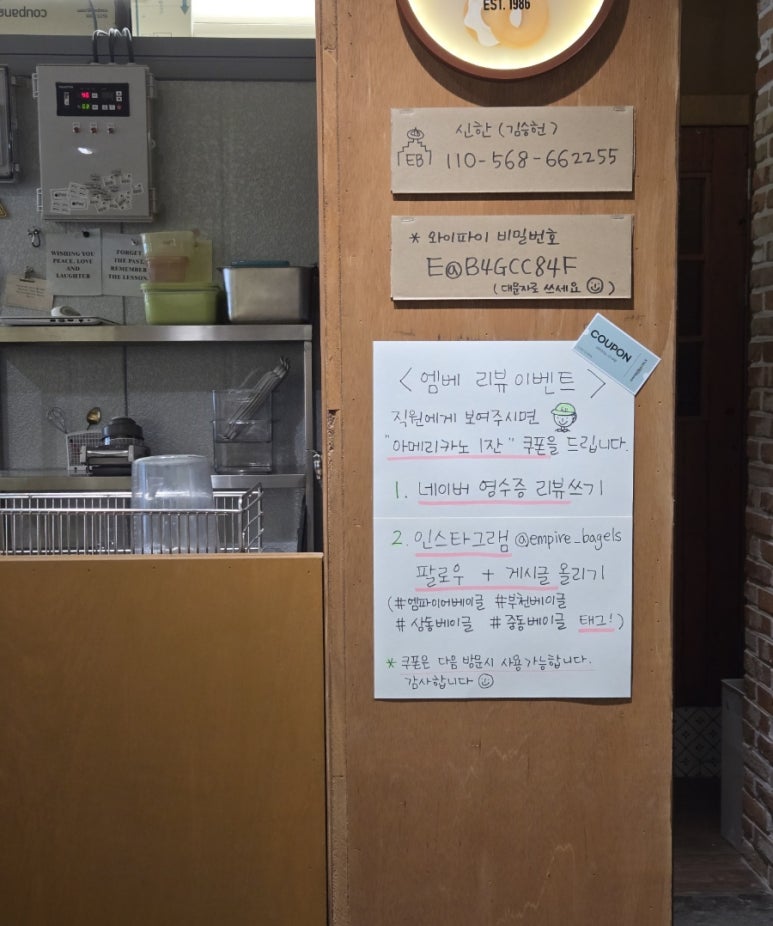 coupang
EST. 1986
신한 (김승헌)
EB 110-568-662255
* 와이파이 비밀번호
E@B4GCC84F
(대문자로 쓰세요)
WISHING YOU
PEACE, LOVE
AND
LAUGHTER
FORGET
THE PAST,
REMEMBER
THE LESSON.
COUPON
<엠베 리뷰이벤트>
직원에게 보여주시면
"아메리카노 1잔" 쿠폰을 드립니다.
1. 네이버 영수증 리뷰쓰기
2. 인스타그램 @empire_bagels
팔로우 + 게시글 올리기
(#엠파이어베이글 #부천베이글
#상동베이글 #중동베이글 태그!)
* 쿠폰은 다음 방문시 사용가능합니다.
감사합니다